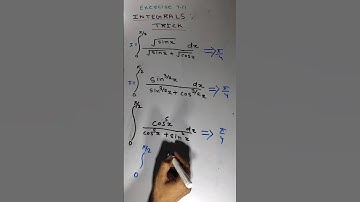 EXERCISE 7.11
INTEGRALS :
TRICK
I = ∫₀^{π/2} √sinx / (√sinx + √cosx) dx ⇒ π/4
I = ∫₀^{π/2} sin^{3/2}x / (sin^{3/2}x + cos^{3/2}x) dx ⇒ π/4
∫₀^{π/2} cos⁵x / (cos⁵x + sin⁵x) dx ⇒ π/4
∫₀^{π/2}